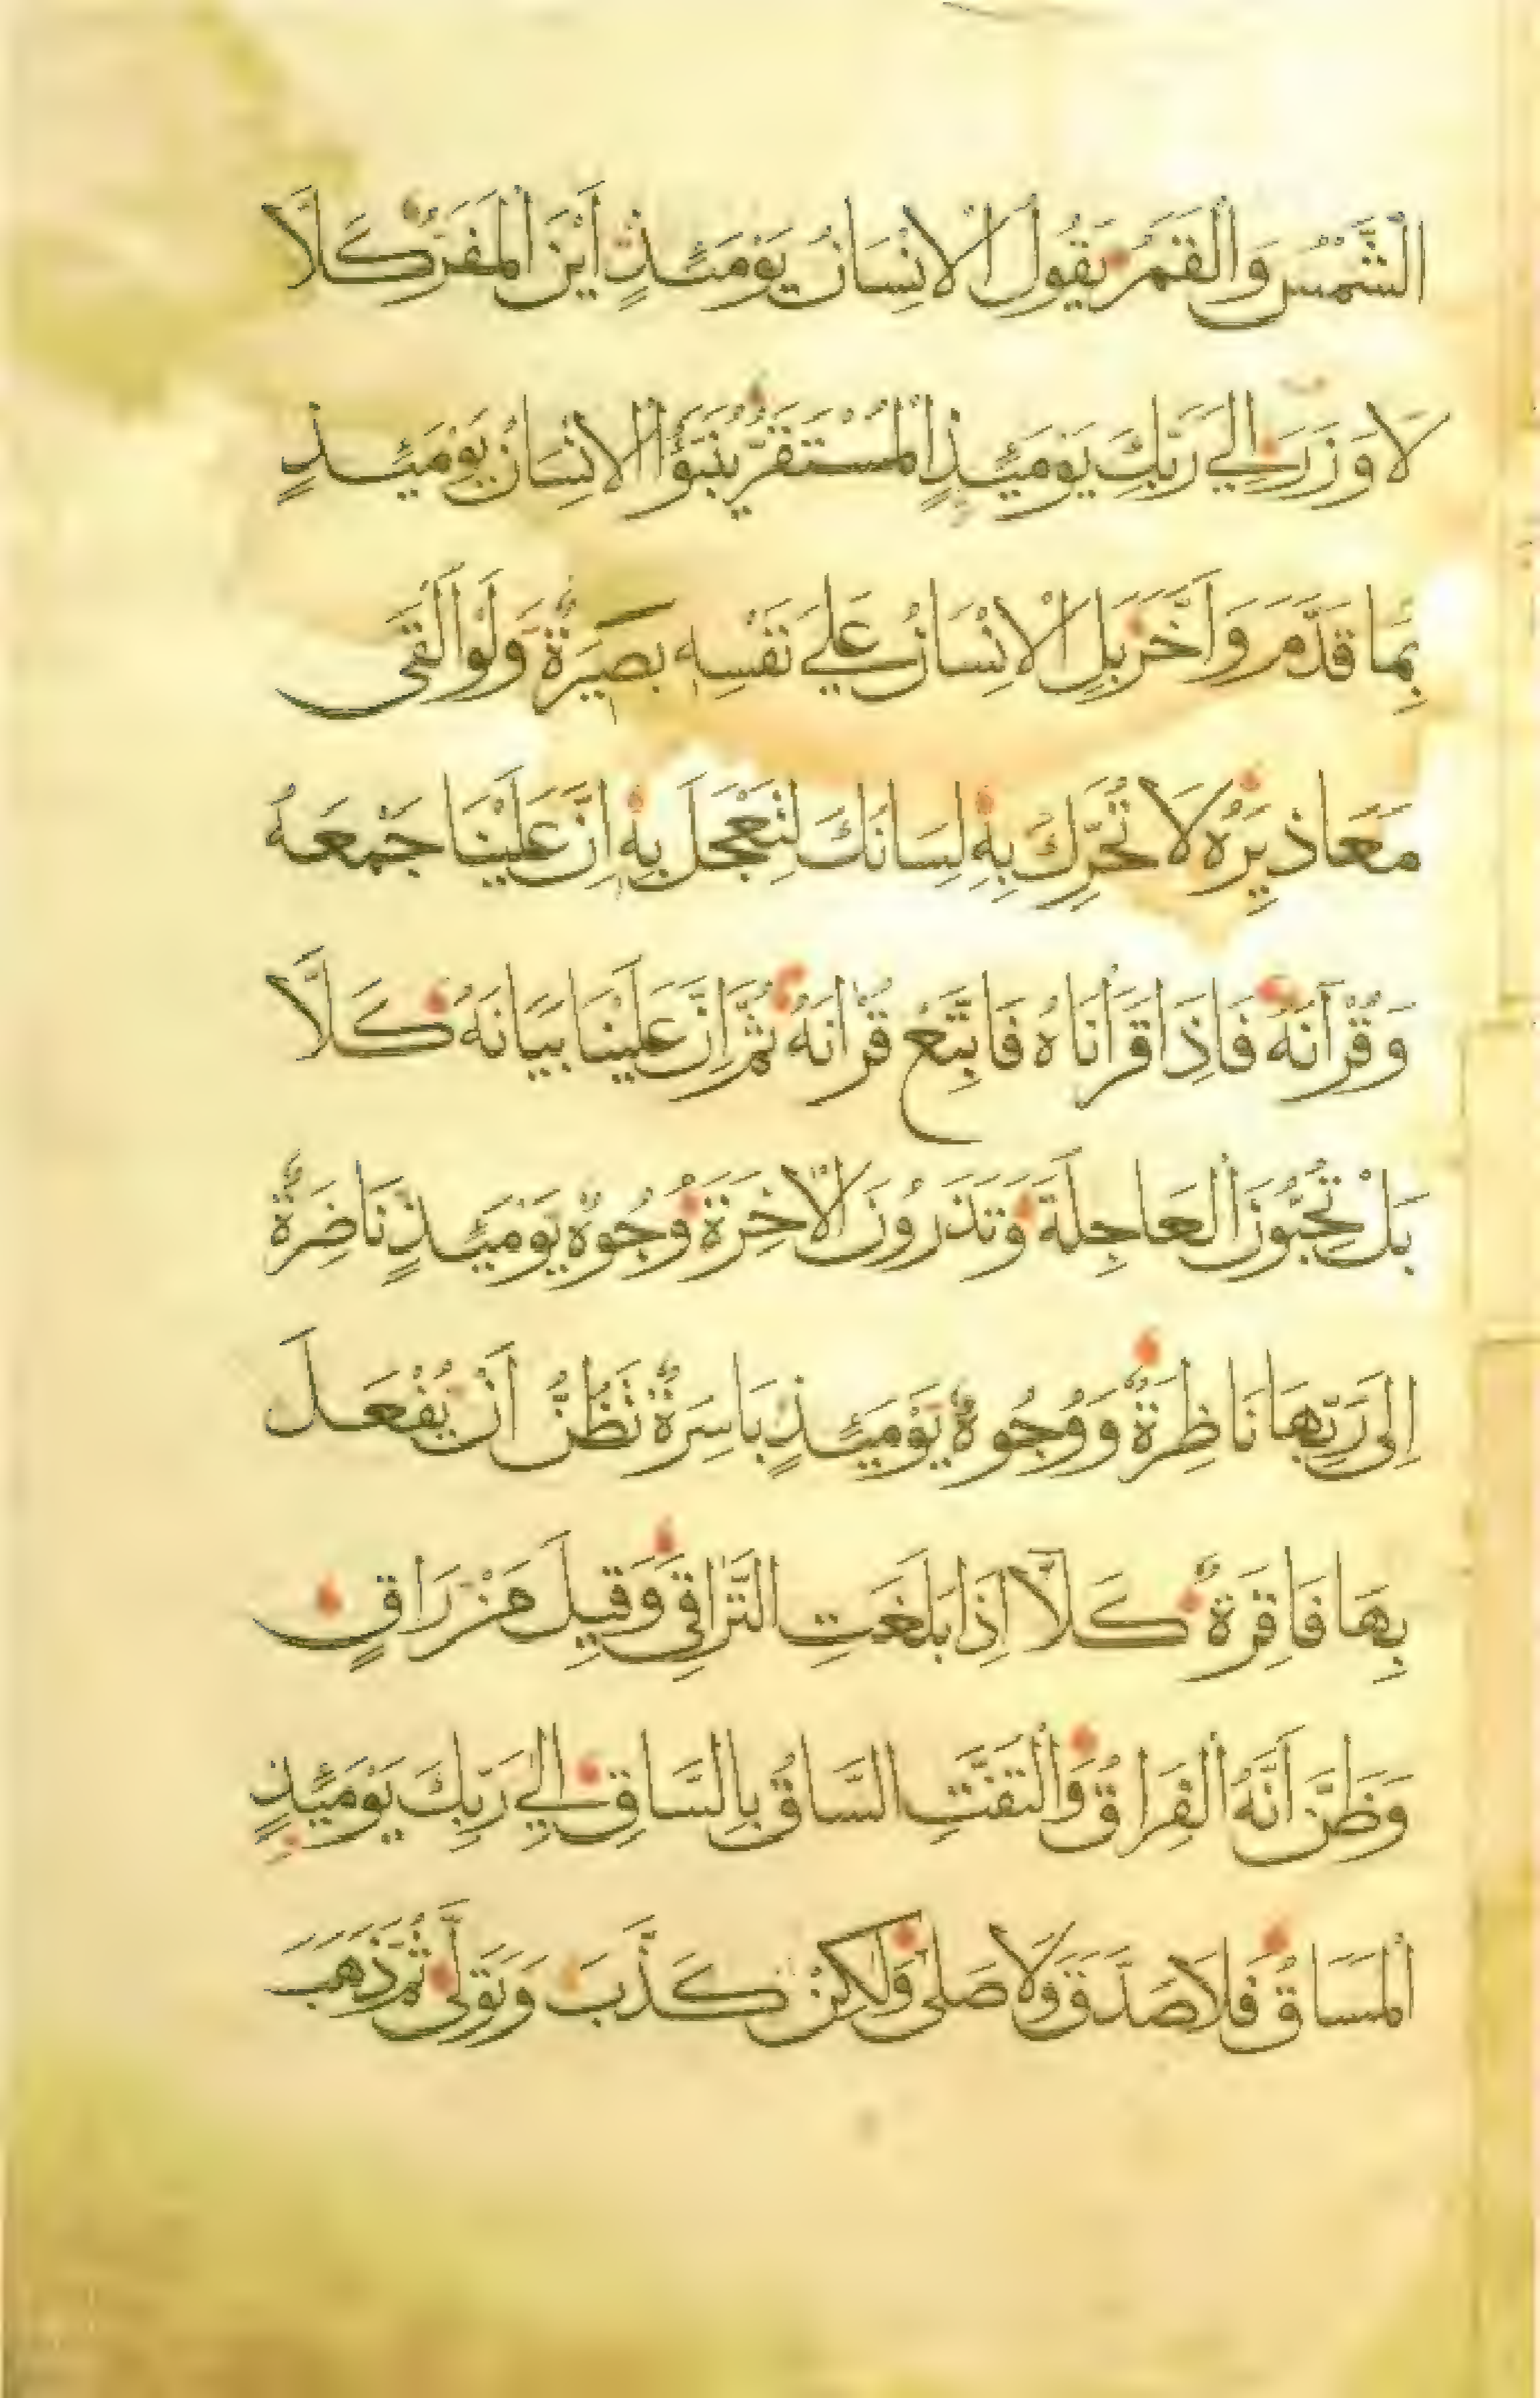 الشَّمْسُ وَالْقَمَرُ يَقُولُ الْاِنْسَانُ يَوْمَئِذٍ اَيْنَ الْمَفَرُّ كَلَّا
لَا وَزَرَ اِلَي رَبِّكَ يَوْمَئِذٍ الْمُسْتَقَرُّ يُنَبَّؤُا الْاِنْسَانُ يَوْمَئِذٍ
بِمَا قَدَّمَ وَاَخَّرَ بَلِ الْاِنْسَانُ عَلَي نَفْسِهِ بَصِيرَةٌ وَلَوْ اَلْقَى
مَعَاذِيرَهُ لَا تُحَرِّكْ بِهِ لِسَانَكَ لِتَعْجَلَ بِهِ اِنَّ عَلَيْنَا جَمْعَهُ
وَقُرْآنَهُ فَاِذَا قَرَأْنَاهُ فَاتَّبِعْ قُرْانَهُ ثُمَّ اِنَّ عَلَيْنَا بَيَانَهُ كَلَّا
بَلْ تُحِبُّونَ الْعَاجِلَةَ وَتَذَرُونَ الْاٰخِرَةَ وُجُوهٌ يَوْمَئِذٍ نَاضِرَةٌ
اِلَى رَبِّهَا نَاظِرَةٌ وَوُجُوهٌ يَوْمَئِذٍ بَاسِرَةٌ تَظُنُّ اَنْ يُفْعَلَ
بِهَا فَاقِرَةٌ كَلَّا اِذَا بَلَغَتِ التَّرَاقِيَ وَقِيلَ مَنْ رَاقٍ
وَظَنَّ اَنَّهُ الْفِرَاقُ وَالْتَفَّتِ السَّاقُ بِالسَّاقِ اِلَي رَبِّكَ يَوْمَئِذٍ
الْمَسَاقُ فَلَا صَدَّقَ وَلَا صَلَّى وَلَكِنْ كَذَّبَ وَتَوَلَّى ثُمَّ ذَهَبَ